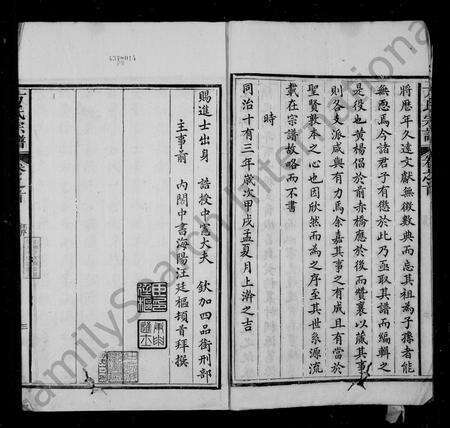 將歷年久遠文獻無徵數典而忘其祖為子孫者能
無慝焉今諸君子有懲於此乃亟取其譜而編輯之
是役也黃楊倡於前赤橋應於後而贊襄以葳其事
則各支派咸與有力焉余嘉其事之有成且有當於
聖賢敦本之心也因欣然而為之序至其世系源流
載在宗譜故略而不書
時
同治十有三年歲次甲戌孟夏月上澣之吉
賜進士出身 誥授中憲大夫 欽加四品銜刑部
主事前 內閣中書海陽汪廷樞頓首拜撰
方氏宗譜
卷之首
三
FamilySearch International